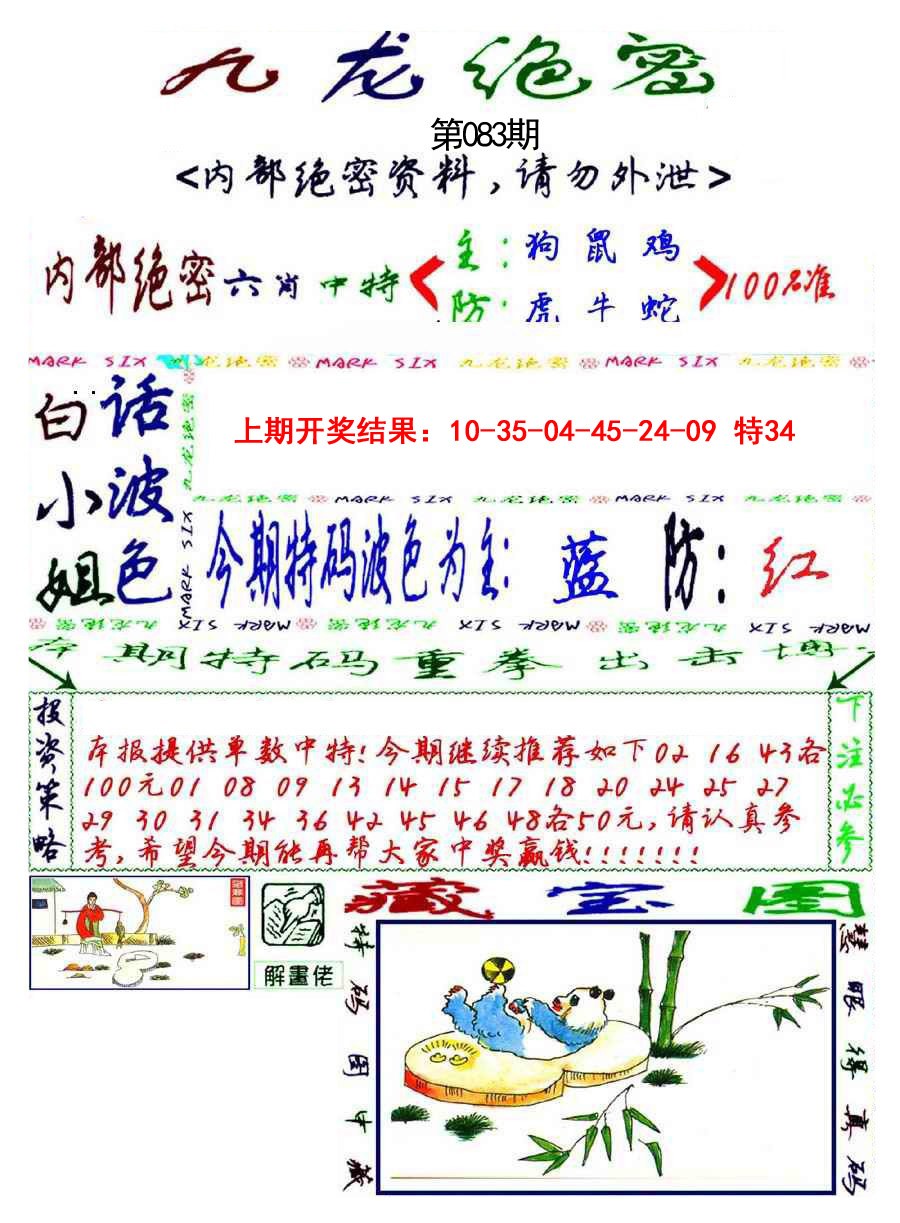 九龙绝密
第083期
<内部绝密资料,请勿外泄>
内部绝密六肖中特
主:狗 鼠 鸡
防:虎 牛 蛇
100%准
MARK SIX 九龙绝密 MARK SIX 九龙绝密 MARK SIX 九龙绝密
白话
小波
姐色
九龙绝密 MARK SIX
上期开奖结果:10-35-04-45-24-09 特34
九龙绝密 MARK SIX 九龙绝密 MARK SIX 九龙绝密
今期特码波色为主:蓝 防:红
九龙绝密 MARK SIX 九龙绝密 MARK SIX 九龙绝密 MARK SIX
本期特码重拳出击
投资策略
本报提供单数中特!今期继续推荐如下02 16 43各
100元01 08 09 13 14 15 17 18 20 24 25 27
29 30 31 34 36 42 45 46 48各50元,请认真参
考,希望今期能再帮大家中奖赢钱!!!!!!!
下注必参
解畫佬
藏宝图
特码图中藏
慧眼得真码